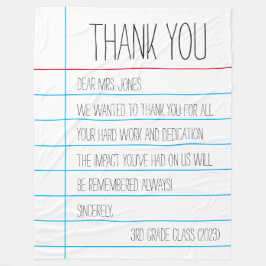 THANK YOU
DEAR MRS JONES
WE WANTED TO THANK YOU FOR ALL
YOUR HARD WORK AND DEDICATION
THE IMPACT YOU'VE HAD ON US WILL
BE REMEMBERED ALWAYS!
SINCERELY,
3RD GRADE CLASS (2023)